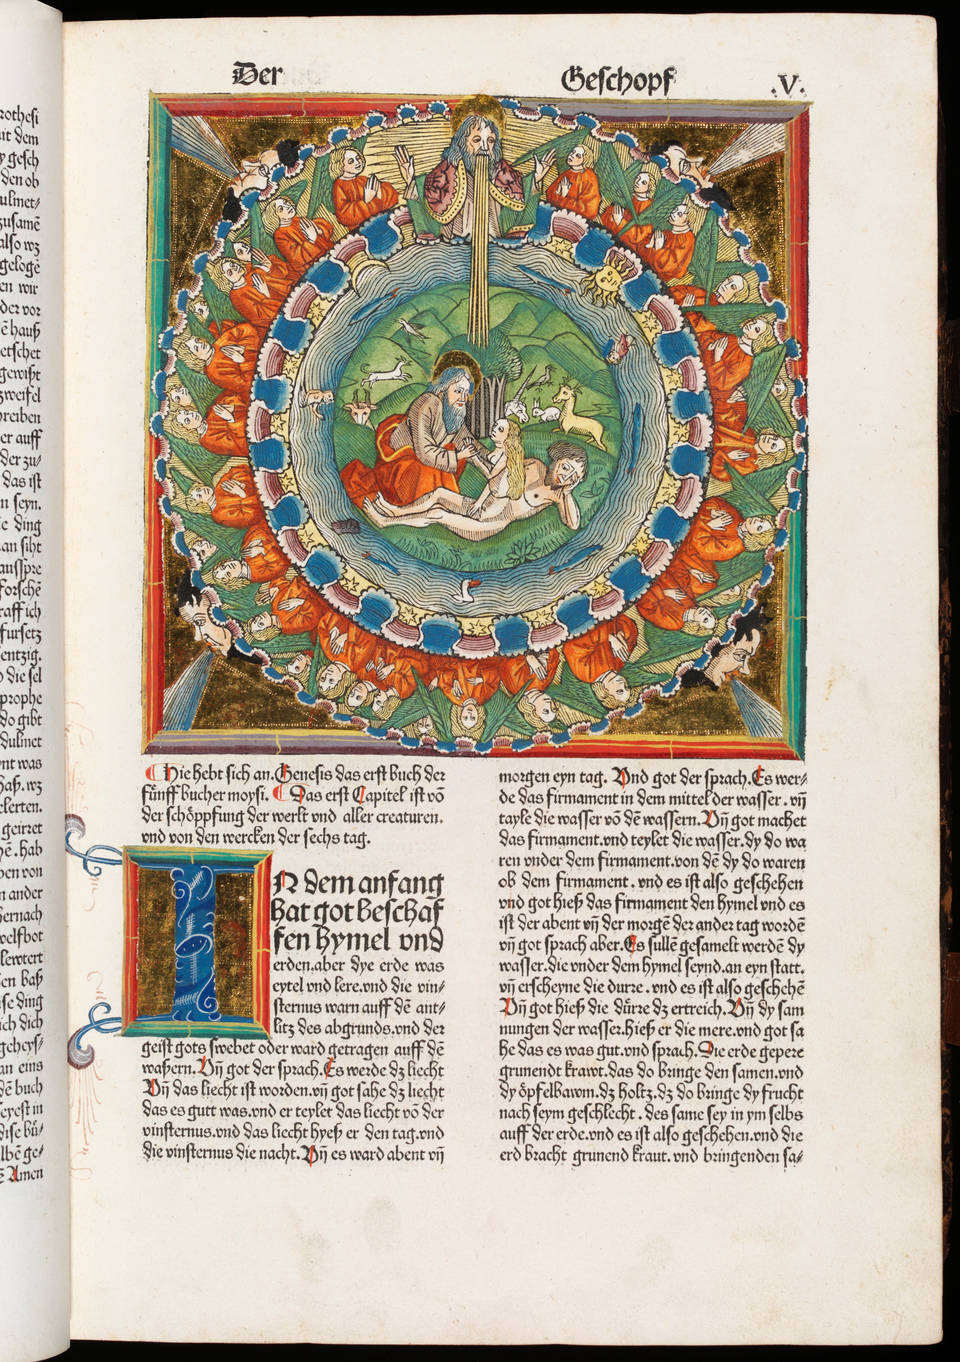 rothesi
it dem
y gesch
den ob
ulmet-
zusamē
also wz
gelogē
en wir
der vor
ē hauß
etschet
gewißt
zweifel
hreiben
er auff
der zu-
das ist
n seyn.
ie ding
an siht
ausspre
Forschē
raff ich
fursetz
entzig.
die sel
prophe
do gibt
dulmet
ynt was
haß. wz
clerten.
geirret
hē. hab
hen von
n ander
hernach
welfbot
lewtert
en baß
se ding
ich dich
geheys-
an eins
dē buch
eyest in
dise bü-
lbē ge-
ē Amen
Der Geschopf .V.
Hie hebt sich an. Genesis das erst buch der
fünff bucher moysi. Das erst Capitel ist vō
der schöppfung der werlt vnd aller creaturen.
vnd von den wercken der sechs tag.
IN dem anfang
hat got beschaf
fen hymel vnd
erden. aber dye erde was
eytel vnd lere. vnd die vin-
sternus warn auff dē ant-
litz des abgrunds. vnd der
geist gots swebet oder ward getragen auff dē
waßern. Vn̄ got der sprach. Es werde dz liecht
Vn̄ das liecht ist worden. vn̄ got sahe dz liecht
das es gutt was. vnd er teylet das liecht vō der
vinsternus. vnd das liecht hyeß er den tag. vnd
die vinsternus die nacht. Vn̄ es ward abent vn̄
morgen eyn tag. Vnd got der sprach. Es wer-
de das firmament in dem mittel der wasser. vn̄
tayle die wasser vō dē wassern. Vn̄ got machet
das firmament. vnd teylet die wasser. dy do wa
ren vnder dem firmament. von dē dy do waren
ob dem firmament. vnd es ist also geschehen
vnd got hieß das firmament den hymel vnd es
ist der abent vn̄ der morgē der ander tag wordē
vn̄ got sprach aber. Es sullē gesamelt werdē dy
wasser. die vnder dem hymel seynd. an eyn statt.
vn̄ erscheyne die durre. vnd es ist also geschehē
Vn̄ got hieß die dürre dz ertreich. Vn̄ dy sam
nungen der wasser. hieß er die mere. vnd got sa
he das es was gut. vnd sprach. Die erde gepere
grunendt krawt. das do bringe den samen. vnd
dy öpfelbawm. dz holtz. dz do bringe dy frucht
nach seym geschlecht. des same sey in ym selbs
auff der erde. vnd es ist also geschehen. vnd die
erd bracht grunend kraut. vnd bringenden sa-